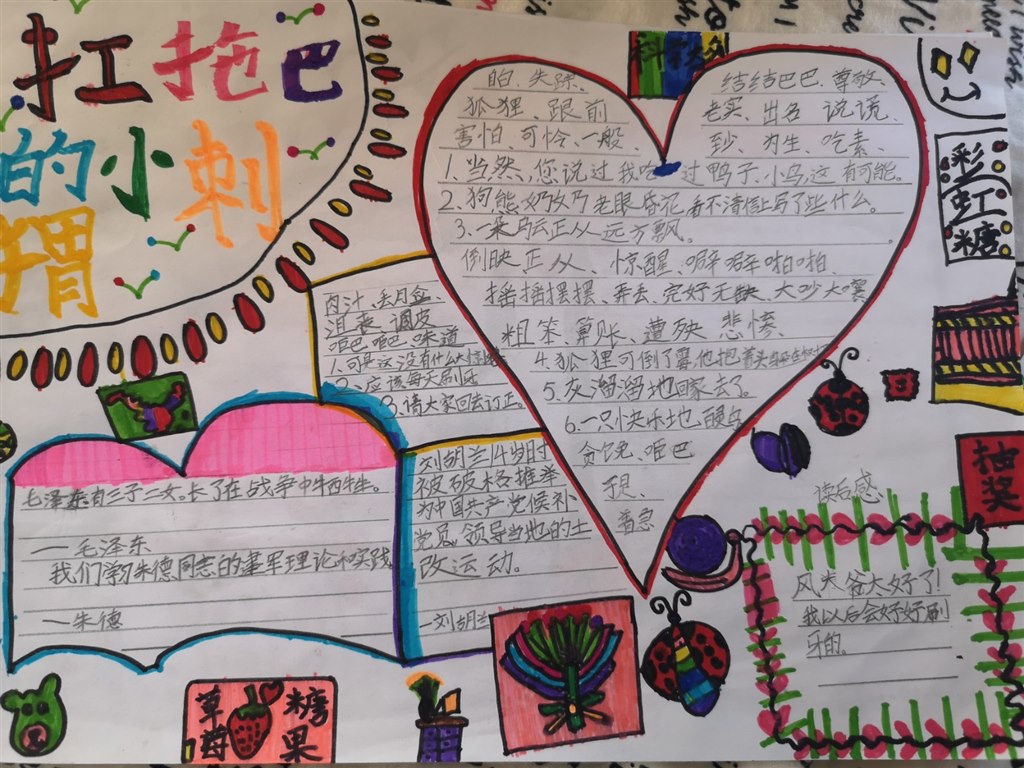 扛拖巴
的小刺
猬
科技
的、失踪、
狐狸、跟前
害怕、可怜、一般、
结结巴巴、尊敬
老实、出名 说谎、
到、为生、吃素、
1.当然,您说过我吃过鸭子、小鸟,这有可能。
2.狗熊奶奶老眼昏花,看不清信上写了些什么。
3.一朵乌云正从远方飘。
倒映正从、惊醒、噼噼啪啪、
摇摇摆摆、弄丢、完好无缺、大吵大嚷
粗笨、算账、遭殃、悲惨、
4.狐狸可倒了霉,他把
5.灰溜溜地回家去了。
6.一只快乐地
贪馋、哑巴
着急
彩虹糖
肉汁、
沮丧、调皮
吧、味道
1.可是这没有什么
2、应该每天刷牙
3.请大家回去订正。
毛泽东有三子二女,长子在战争中牺牲。
—毛泽东
我们学习朱德同志的建军理论和实践
—朱德
刘胡兰14岁时
被破格推举
为中国共产党候补
党员,领导当地的土
改运动。
—刘胡兰
抽奖
读后感
风爷爷太好了!
我以后会好好刷
牙的。
草莓
糖果